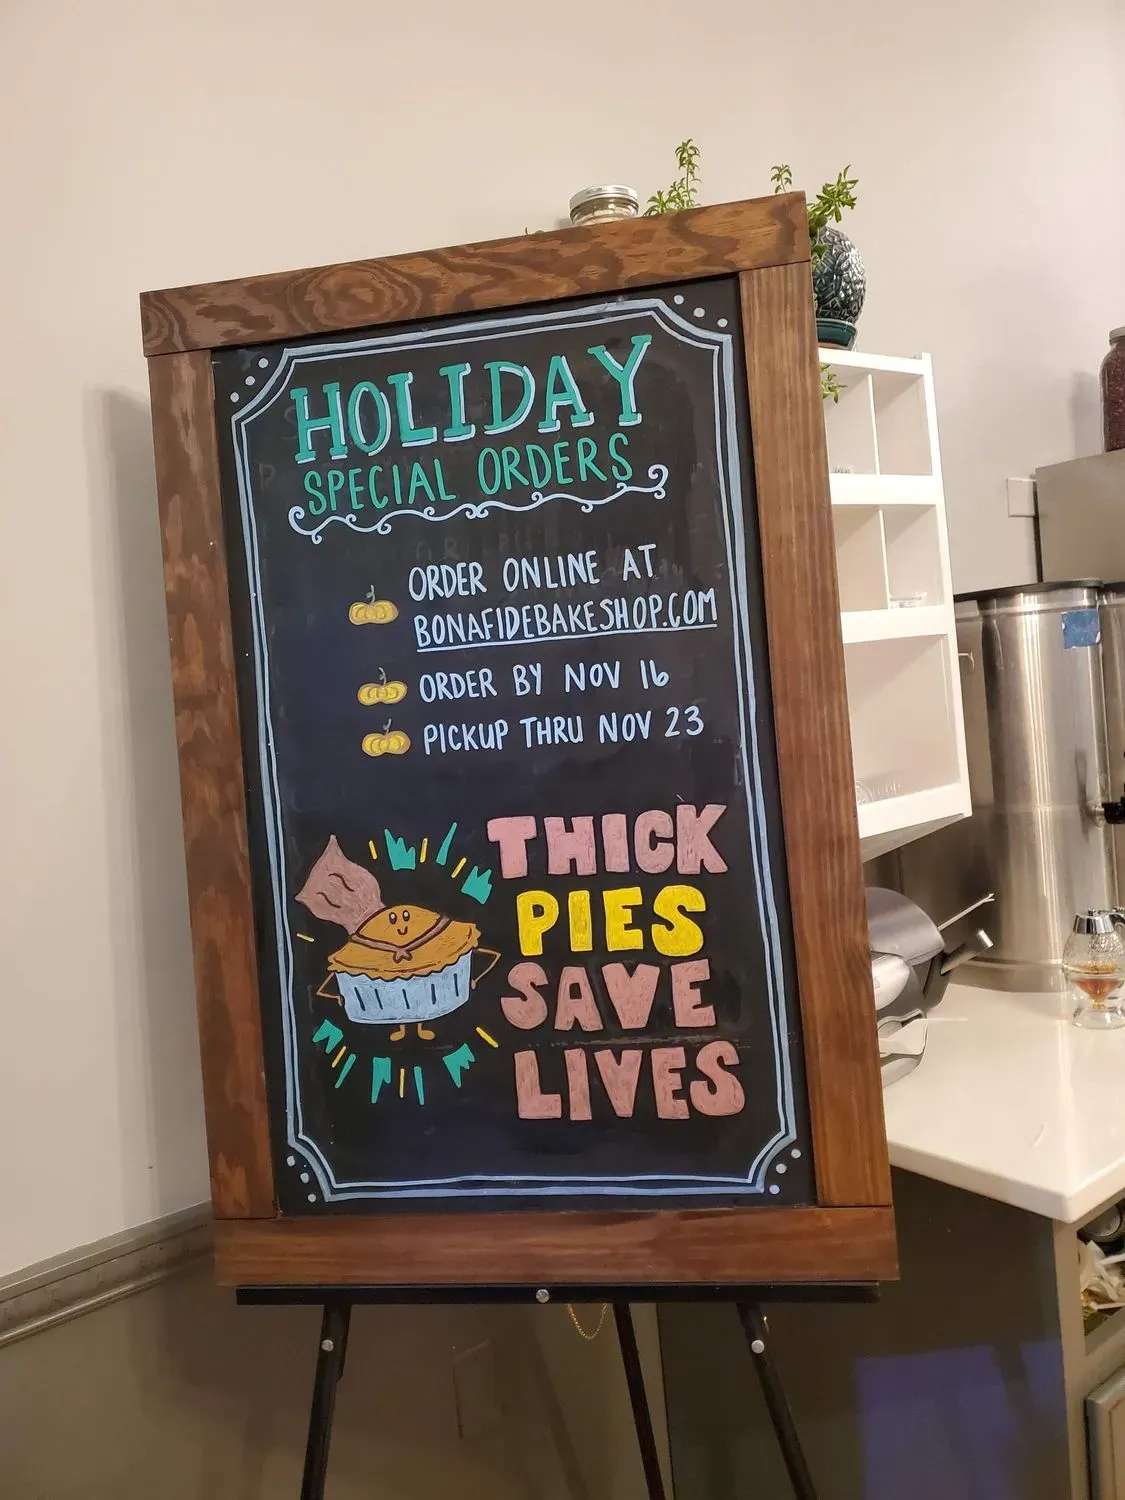 HOLIDAY
SPECIAL ORDERS
ORDER ONLINE AT
BONAFIDEBAKESHOP.COM
ORDER BY NOV 16
PICKUP THRU NOV 23
THICK
PIES
SAVE
LIVES